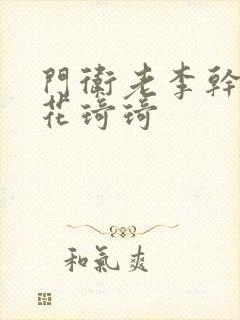 門衛老李幹
花琦琦
和氣爽